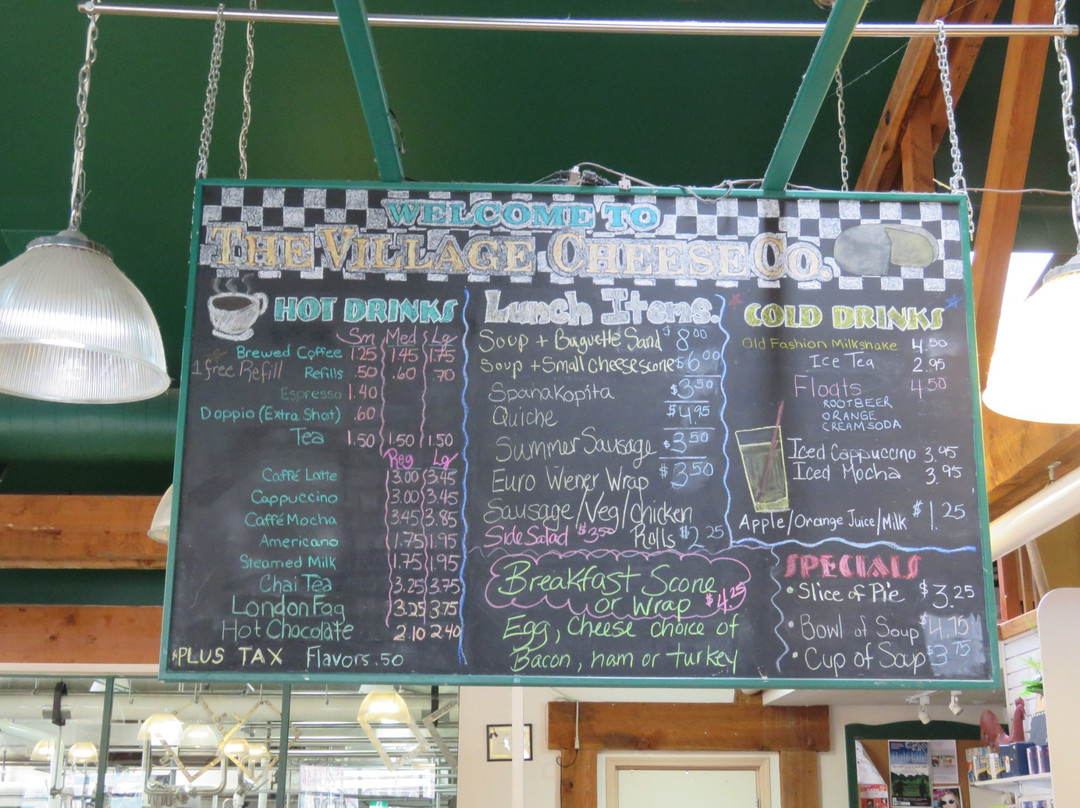 WELCOME TO
THE VILLAGE CHEESE CO.
HOT DRINKS
Sm Med Lg
Brewed Coffee 1.25 1.45 1.75
1 free Refill Refills .50 .60 .70
Espresso 1.40
Doppio (Extra Shot) .60
Tea 1.50 1.50 1.50
Reg Lg
Caffé Latte 3.00 3.45
Cappuccino 3.00 3.45
Caffé Mocha 3.45 3.85
Americano 1.75 1.95
Steamed Milk 1.75 1.95
Chai Tea 3.25 3.75
London Fog 3.25 3.75
Hot Chocolate 2.10 2.40
*PLUS TAX Flavors .50
Lunch Items.
Soup + Baguette Sand $8.00
Soup + Small cheese scone $6.00
Spanakopita $3.50
Quiche $4.95
Summer Sausage $3.50
Euro Wiener Wrap $3.50
Sausage/Veg/chicken
Side Salad $3.50 Rolls $2.25
Breakfast Scone
or Wrap $4.25
Egg, Cheese choice of
Bacon, ham or turkey
COLD DRINKS
Old Fashion Milkshake 4.50
Ice Tea 2.95
Floats 4.50
ROOTBEER
ORANGE
CREAM SODA
Iced Cappuccino 3.95
Iced Mocha 3.95
Apple/Orange Juice/Milk $1.25
SPECIALS
• Slice of Pie $3.25
• Bowl of Soup $4.75
• Cup of Soup $3.75